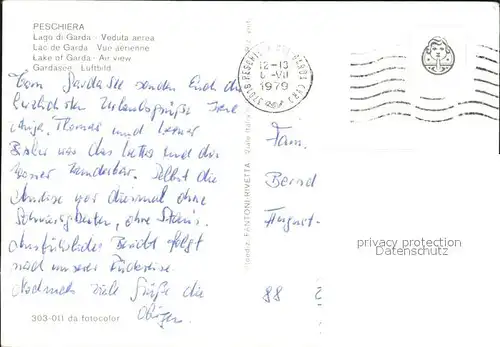 PESCHIERA
Lago di Garda - Veduta aerea
Lac de Garda - Vue aérienne
Lake of Garda - Air view
Gardasee - Luftbild
37016 PESCHIERA DEL GARDA (VR)
12-13
6-VII
1979
Vom Gardasee senden Euch die
herzlichsten Urlaubsgrüße
Anja, Thomas und Werner
Bisher war das Wetter und das
Wasser wunderbar. Selbst die
Anreise war diesmal ohne
Schwierigkeiten, ohne Staus.
Ausführlicher Bericht folgt
nach unserer Rückreise.
Nochmals viele Grüße die
Obigen.
303-011 da fotocolor
FANTONI-RIVETTA - Viale Italia
Fam.
Bernd
August-
88
privacy protection
Datenschutz